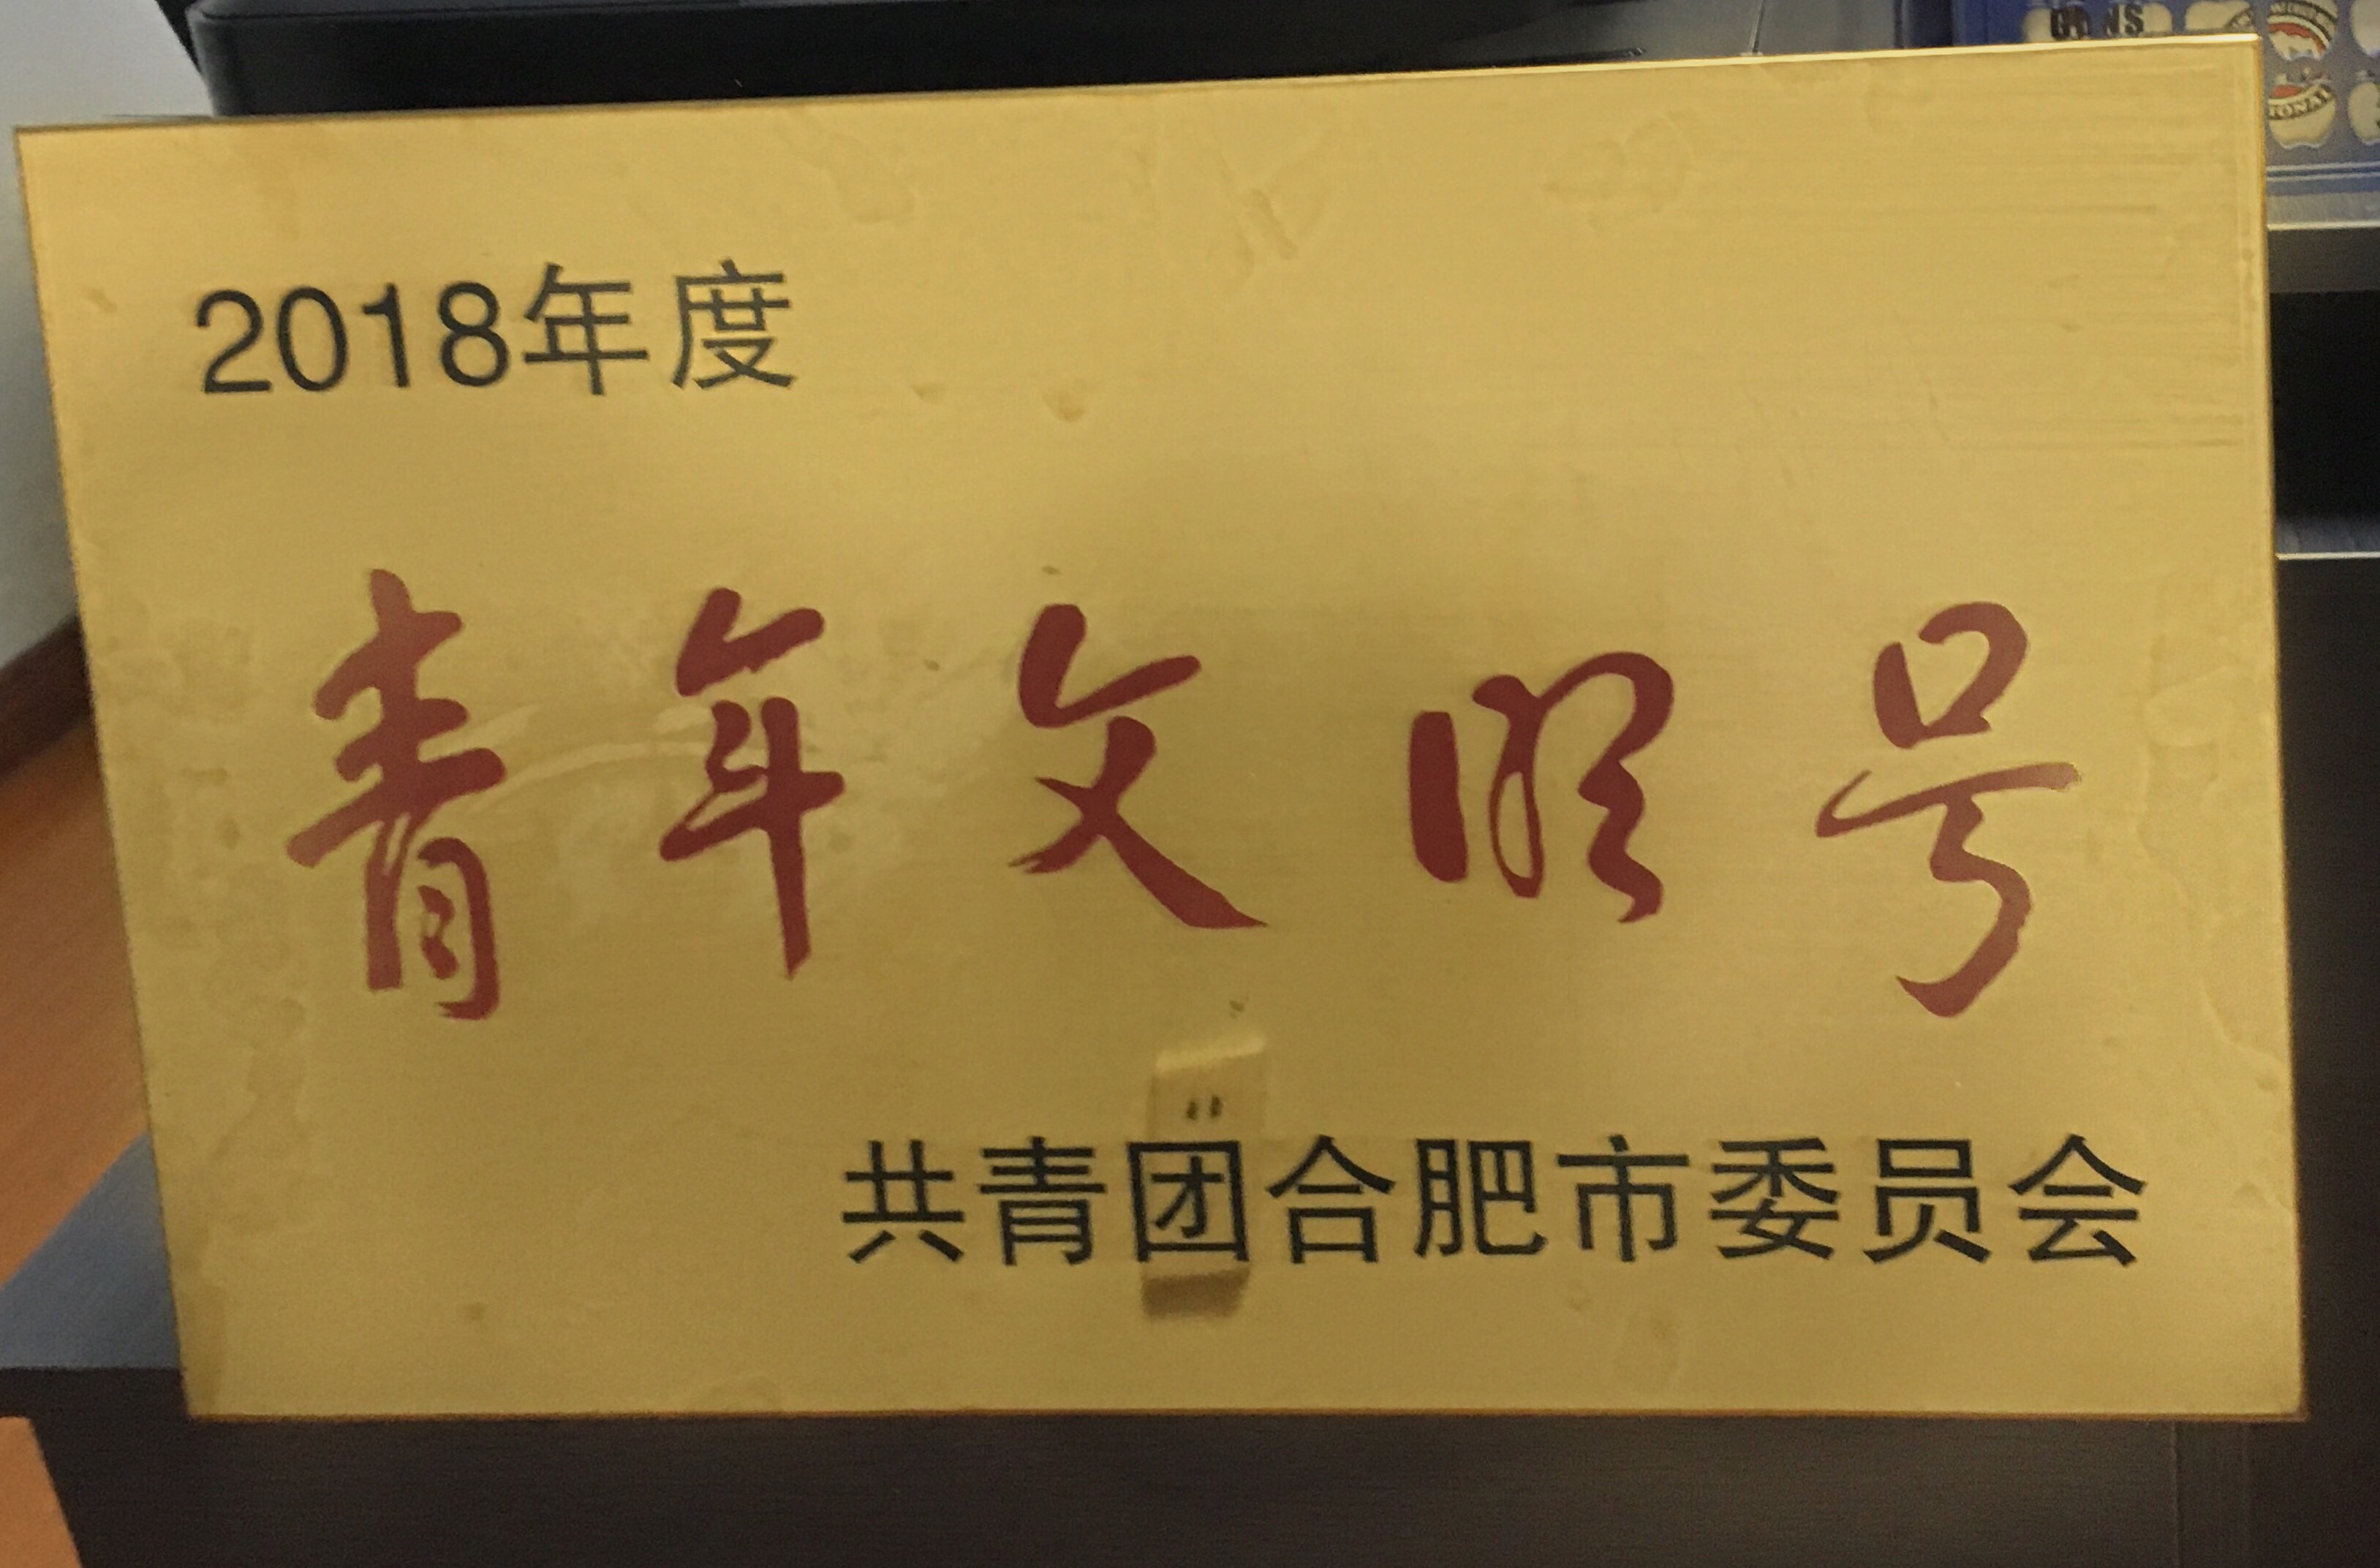 2018年度
青年文明号
共青团合肥市委员会